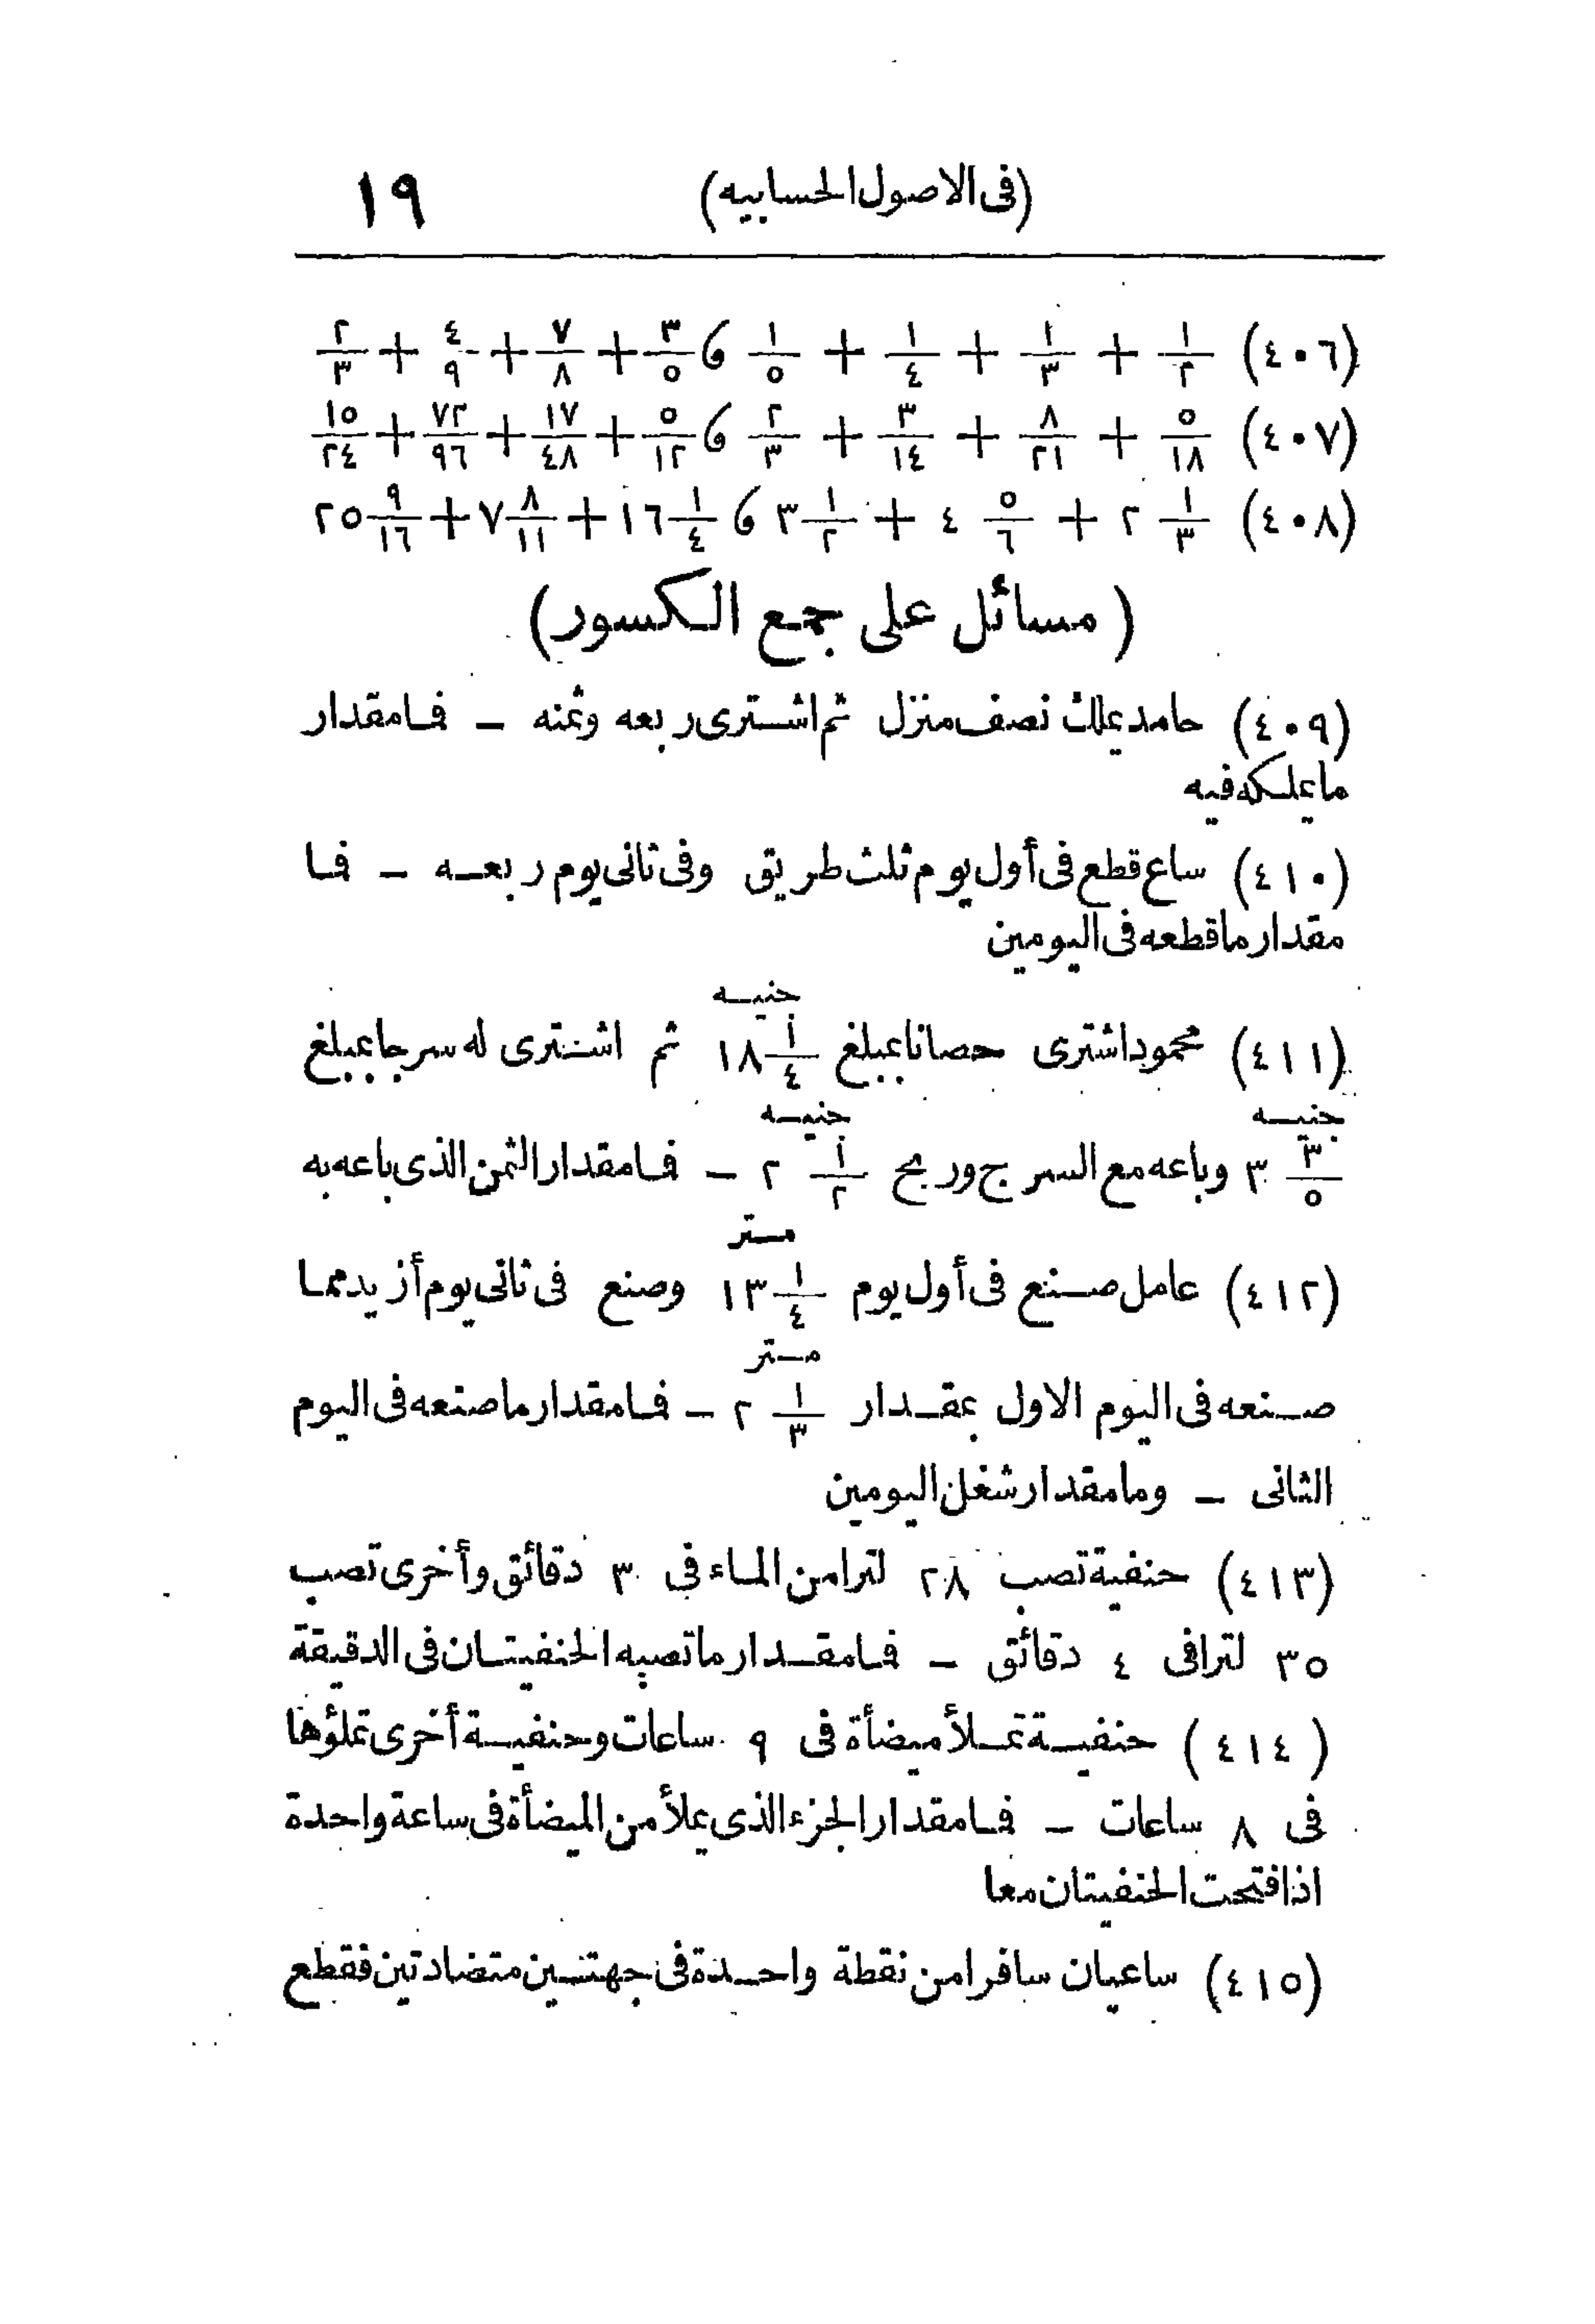 (فى الاصول الحسابيه) ١٩
(٤٠٦) ١/٢ + ١/٣ + ١/٤ + ١/٥ و ٣/٥ + ٧/٨ + ٤/٩ + ٢/٣
(٤٠٧) ٥/١٨ + ٨/٢١ + ٣/١٤ + ٢/٣ و ٥/١٢ + ١٧/٤٨ + ٧٢/٩٦ + ١٥/٢٤
(٤٠٨) ١/٣ ٢ + ٥/٦ ٤ + ١/٢ ٣ و ١/٤ ١٦ + ٨/١١ ٧ + ٩/١٦ ٢٥
(مسائل على جمع الكسور)
(٤٠٩) حامد يملك نصف منزل ثم اشترى ربعه وثمنه – فما مقدار
ما يملكه فيه
(٤١٠) ساع قطع فى أول يوم ثلث طريق وفى ثانى يوم ربعه – فما
مقدار ما قطعه فى اليومين
جنيه
(٤١١) محمود اشترى حصانا بمبلغ ١/٤ ١٨ ثم اشترى له سرجا بمبلغ
جنيه جنيه
٣/٥ ٣ وباعه مع السرج وربح ١/٢ ٢ – فما مقدار الثمن الذى باعه به
متر
(٤١٢) عامل صنع فى أول يوم ١/٤ ١٣ وصنع فى ثانى يوم أزيد مما
متر
صنعه فى اليوم الاول بمقدار ١/٣ ٢ – فما مقدار ما صنعه فى اليوم
الثانى – وما مقدار شغل اليومين
(٤١٣) حنفية تصب ٢٨ لترا من الماء فى ٣ دقائق وأخرى تصب
٣٥ لترا فى ٤ دقائق – فما مقدار ما تصبه الحنفيتان فى الدقيقة
(٤١٤) حنفية تملأ ميضأة فى ٩ ساعات وحنفية أخرى تملؤها
فى ٨ ساعات – فما مقدار الجزء الذى يملأ من الميضأة فى ساعة واحدة
اذا فتحت الحنفيتان معا
(٤١٥) ساعيان سافرا من نقطة واحدة فى جهتين متضادتين فقطع